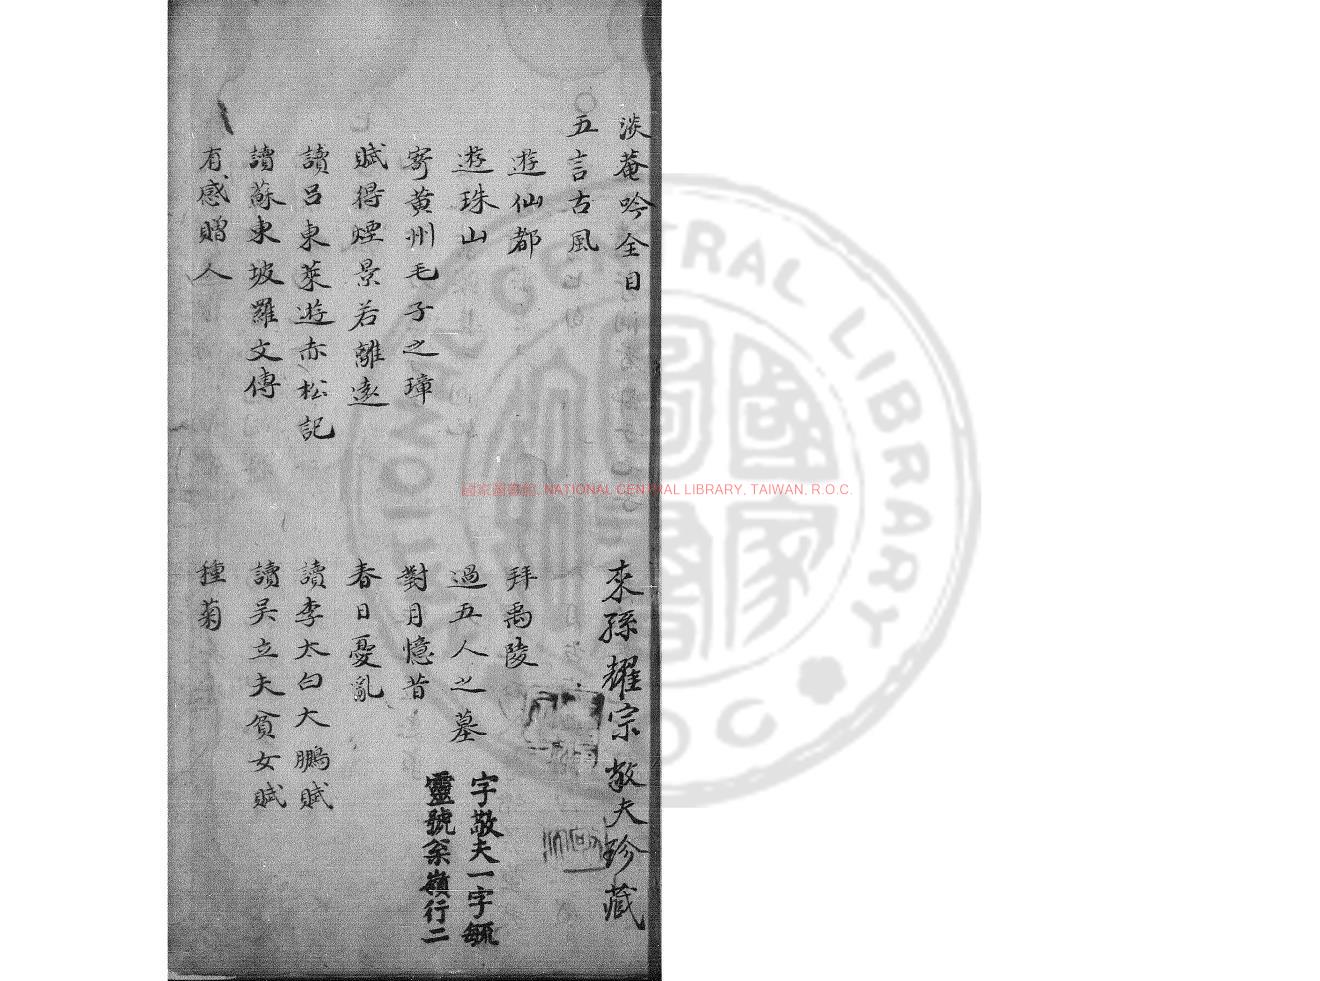 淡菴吟全目
來孫耀宗敬夫珍藏
五言古風
遊仙都
拜禹陵
遊珠山
過五人之墓
字敬夫一字毓
寄黃州毛子之璋
對月憶昔
靈號嶺行二
賦得煙景若離遠
春日憂亂
讀呂東萊遊赤松記
讀李太白大鵬賦
讀蘇東坡羅文傳
讀吳立夫貧女賦
有感贈人
種菊
國家圖書館, NATIONAL CENTRAL LIBRARY, TAIWAN, R.O.C.